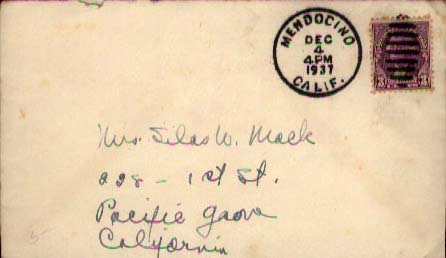 MENDOCINO
DEC
4
4PM
1937
CALIF.
3 3
Mrs. Silas W. Mack
228 - 1st St.
Pacific Grove
California